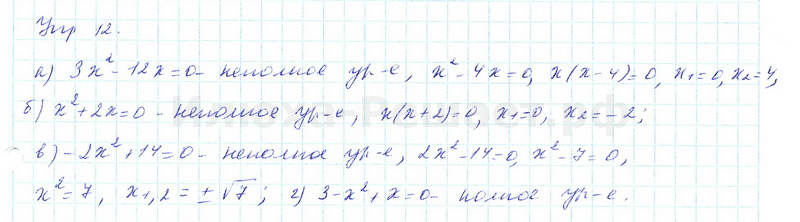 Упр 12.
а) 3x²-12x=0- неполное ур-е, x²-4x=0, x(x-4)=0, x₁=0, x₂=4,
б) x²+2x=0 - неполное ур-е, x(x+2)=0, x₁=0, x₂=-2;
в) -2x²+14=0- неполное ур-е, 2x²-14=0, x²-7=0,
x²=7, x₁,₂=±√7; г) 3-x²+x=0- полное ур-е.